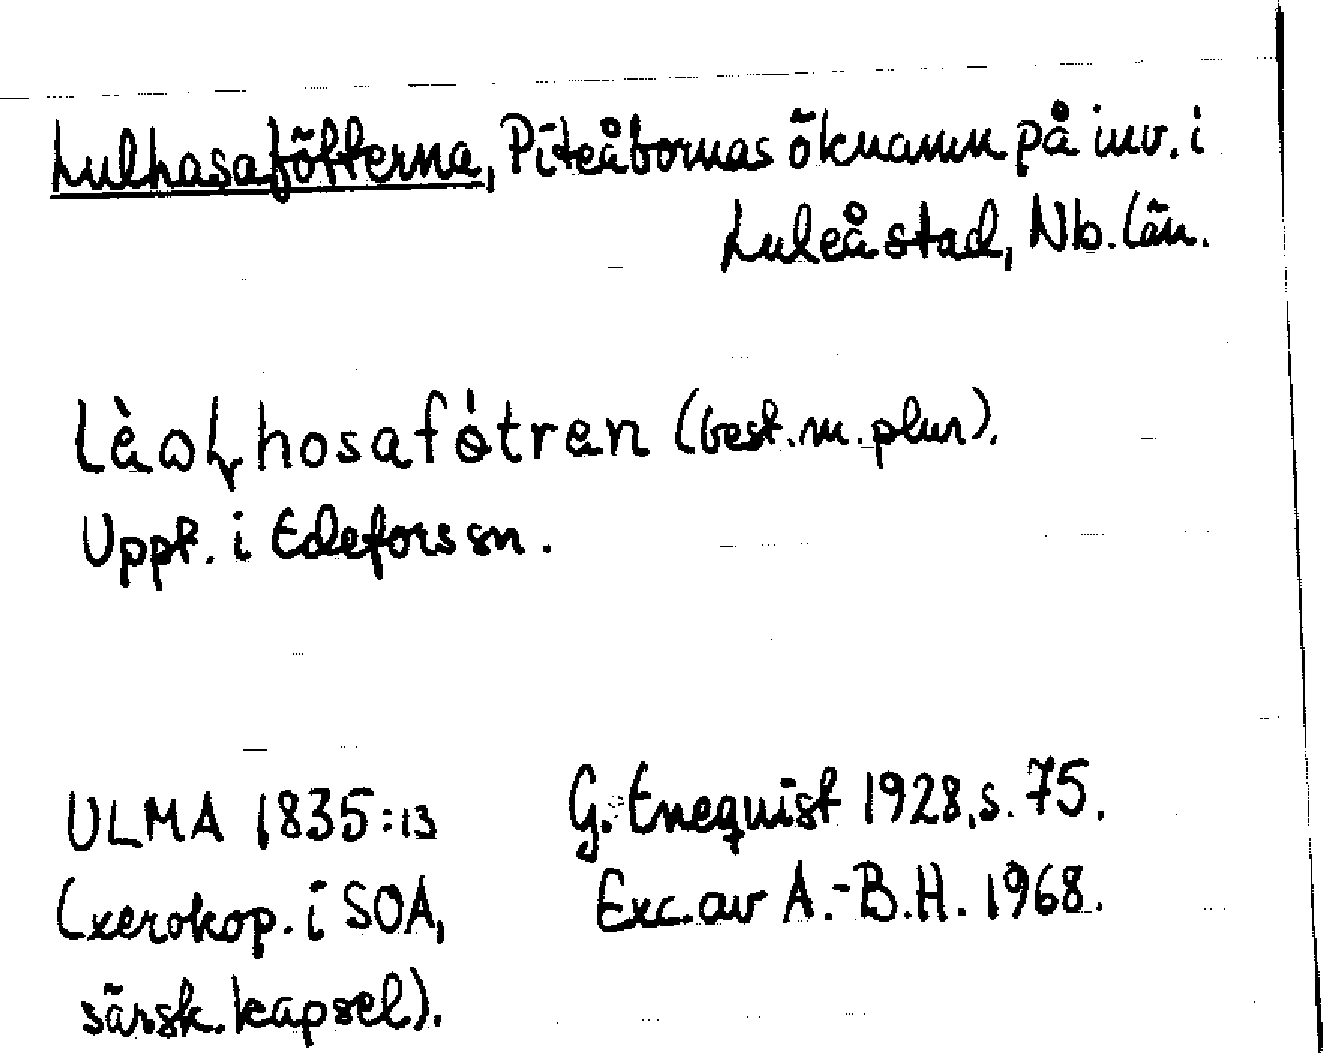 Lulhasafötterna, Piteåbornas öknamn på inv. i
Luleå stad, Nb. län.
lèωɫhosafɵ́tren (best. m. plur).
Uppt. i Edefors sn.
ULMA 1835:13
(xerokop. i SOA,
särsk. kapsel).
G. Enequist 1928, s. 75.
Exc. av A.-B.H. 1968.